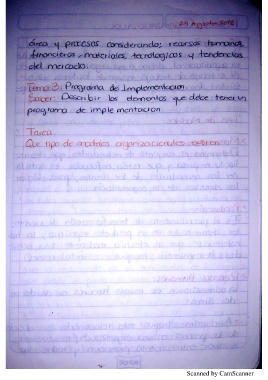 29 Agosto 2016
área y procesos considerando; recursos humanos,
financieros, materiales, tecnologicos y tendencias
del mercado.
Tema 3: Programa de Implementación.
Saber: Describir los elementos que debe tener un
programa de implementación.
Tarea
Que tipo de matrices organizacionales existen
Scanned by CamScanner